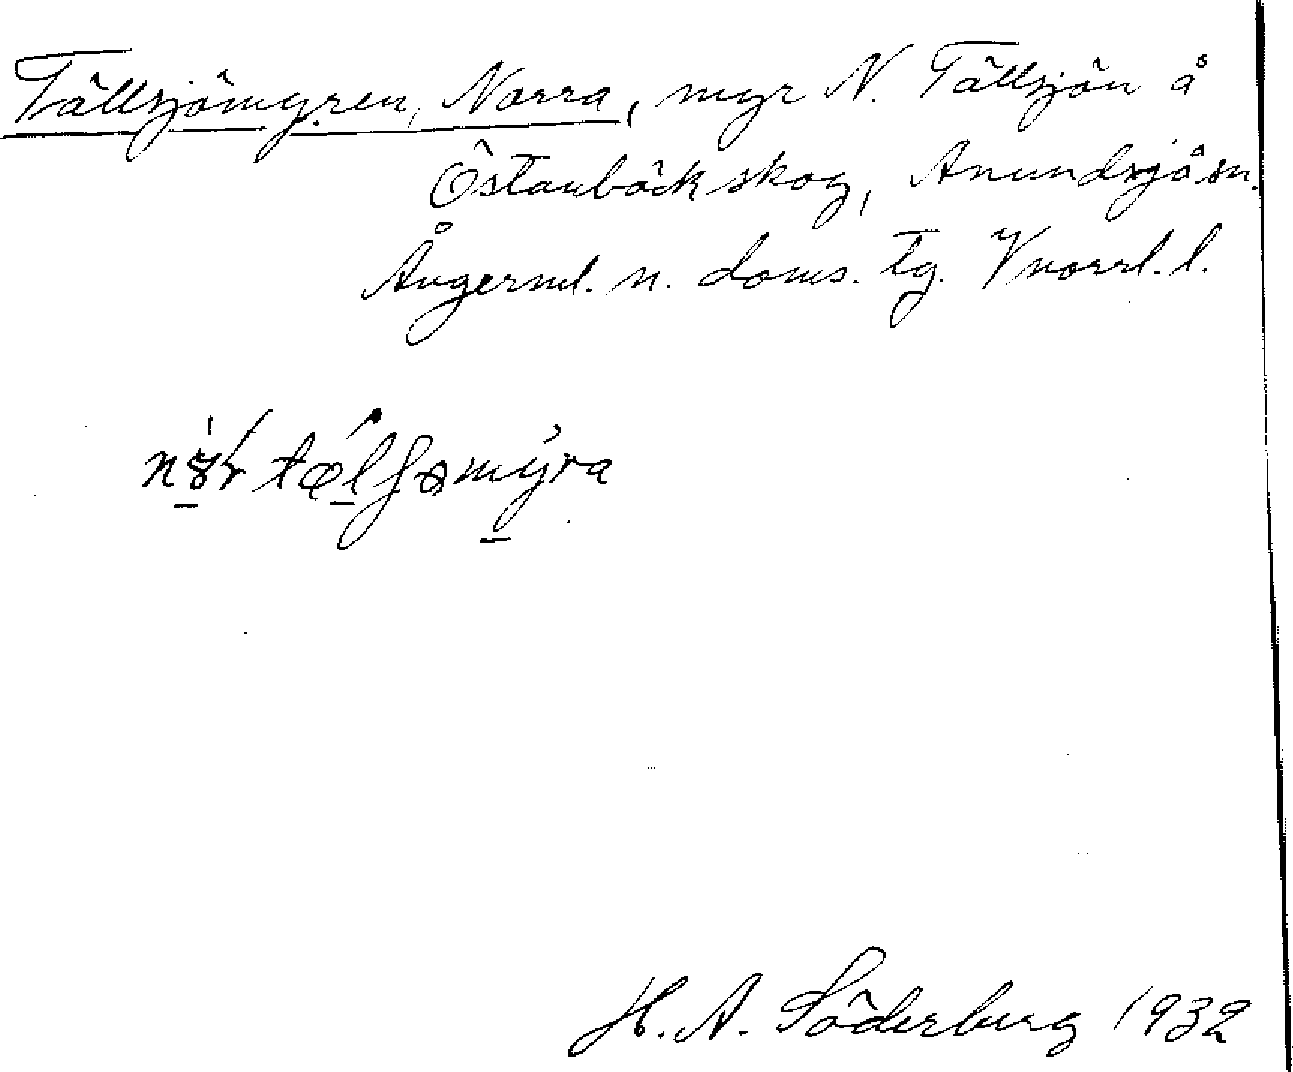 Tällsjömyren, Norra, myr N. Tällsjön å
Östanbäck skog, Anundsjö sn.
Ångerml. n. doms. tg. Vnorrl. l.
H. A. Söderberg 1932